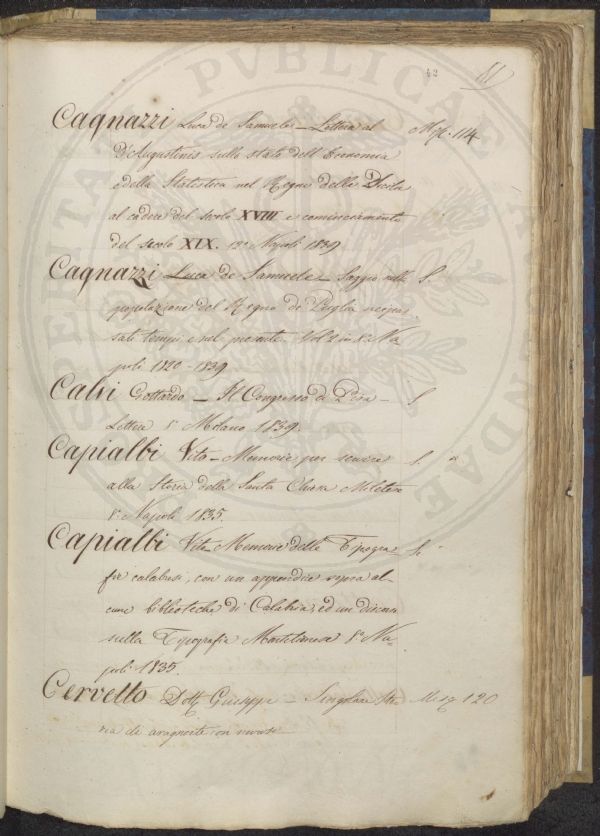 42
Cagnazzi Luca de Samuele - Lettera al M. 114
D'Augustinis sullo stato dell'Economia
e della Statistica nel Regno delle Sicilie
al cadere del secolo XVIII e cominciamento
del secolo XIX. 12° Napoli 1839
Cagnazzi Luca de Samuele - Saggio sulla S.
popolazione del Regno di Puglia ne' pas
sati tempi e nel presente. Vol 2 in 8° Na
poli 1820-1839
Calvi Gottardo - Il Congresso di Pisa - S
Lettere 8° Milano 1839.
Capialbi Vito - Memorie per servire S.
alla Storia della Santa Chiesa Miletese
8° Napoli 1835.
Capialbi Vito Memorie delle Tipogra S.
fie calabresi, con un appendice sopra al-
cune biblioteche di Calabria, ed un discorso
sulla Tipografia Monteleonese 8° Na-
poli 1835.
Cervetto Dott. Giuseppe - Singolare Sto 120
ria di aragnoite con